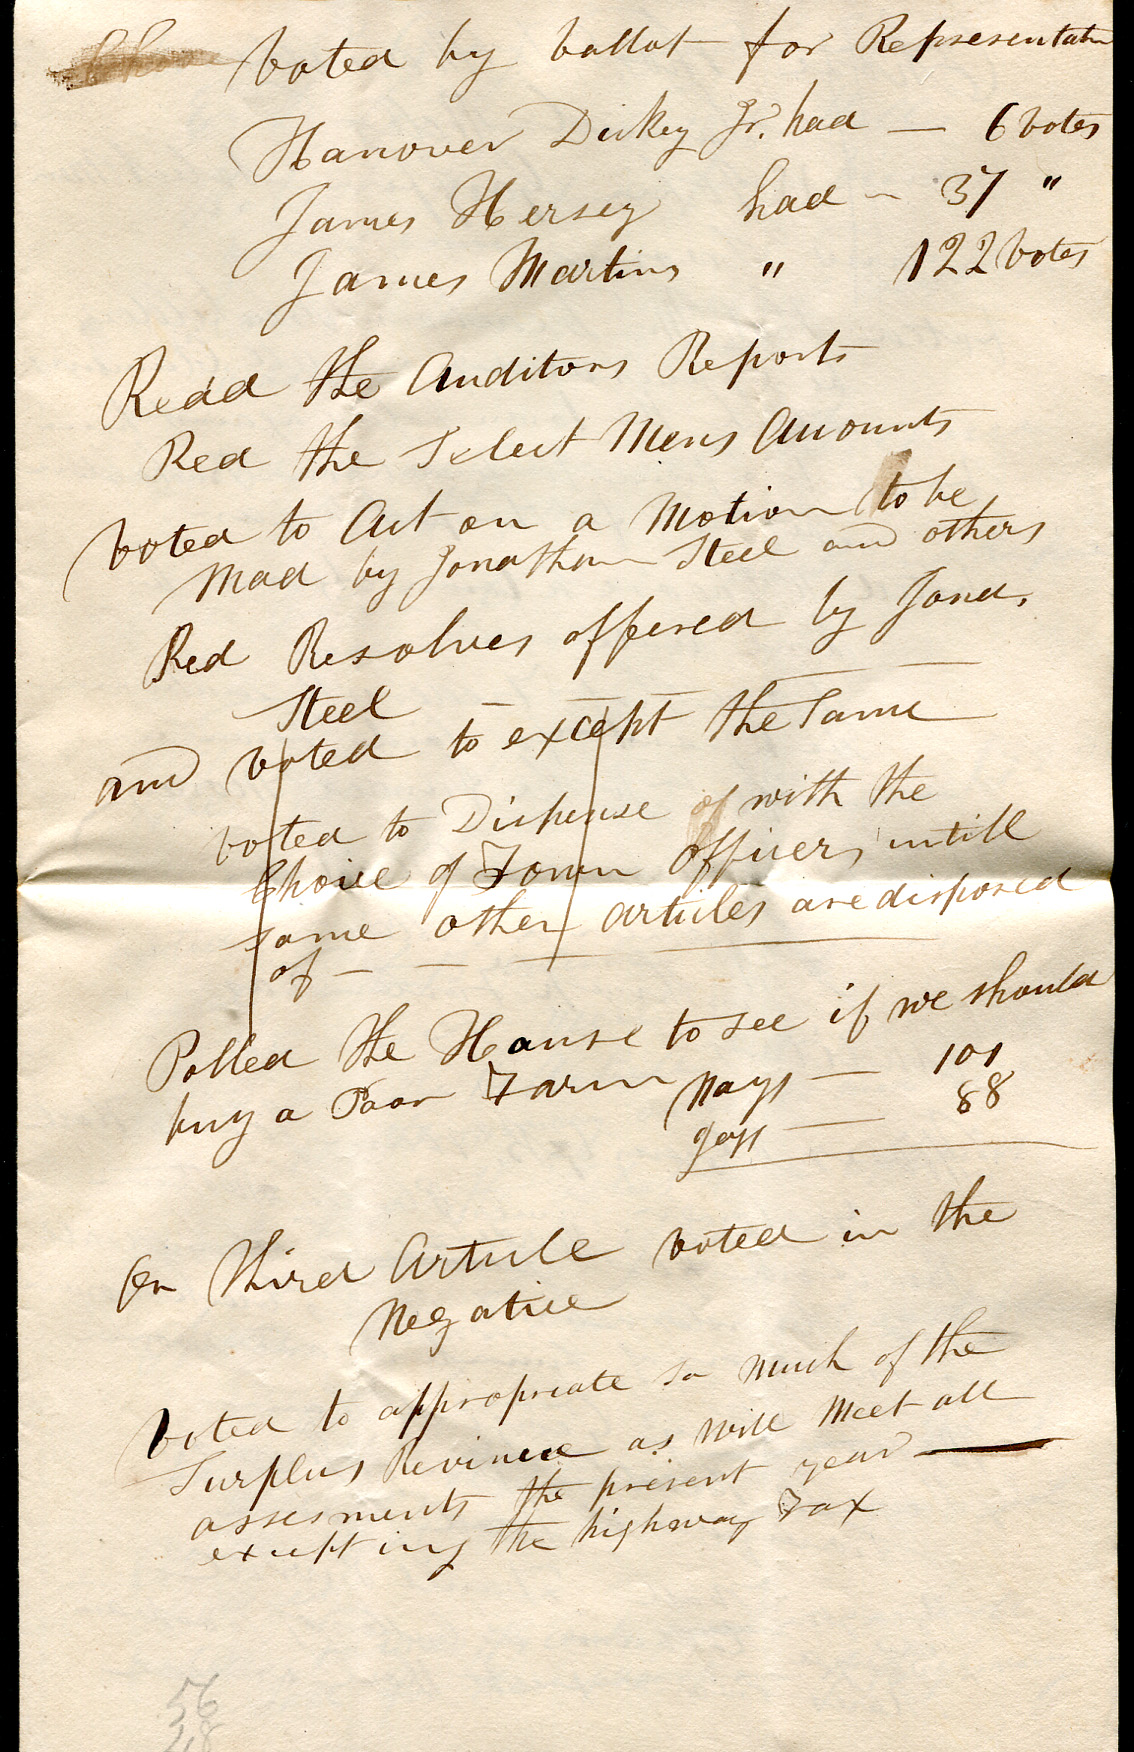 Chose voted by ballot for Representativ
Hanover Dickey Jr. had — 6 votes
James Hersey had — 37 "
James Martins " 122 votes
Read the Auditors Reports
Red the Select Mens Accounts
voted to Act on a Motion to be
Mad by Jonathan Steel and others
Red Resolves offered by Jona.
Steel — — — —
and voted to except the Same
voted to Dispense of with the
Choice of Town Officers, untill
some other articles are disposed
of — — —
Polled the House to see if we should
buy a Poor Farm Nays — 101
yays — 88
On Third Article voted in the
Negative
Voted to appropriate so much of the
Surplus Revinue as will Meet all
assesments the present year —
excepting the highway Tax
56
48